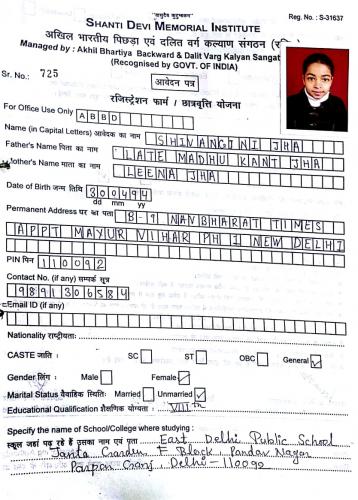 "वसुदैव कुटुम्बकम"
Reg. No. : S-31637
SHANTI DEVI MEMORIAL INSTITUTE
अखिल भारतीय पिछड़ा एवं दलित वर्ग कल्याण संगठन
Managed by : Akhil Bhartiya Backward & Dalit Varg Kalyan Sangat
(Recognised by GOVT. OF INDIA)
Sr. No.: 725
आवेदन पत्र
रजिस्ट्रेशन फार्म / छात्रवृत्ति योजना
For Office Use Only A B B D
Name (in Capital Letters) आवेदक का नाम SHIVANGINI JHA
Father's Name पिता का नाम LATE MADHU KANT JHA
Mother's Name माता का नाम LEENA JHA
Date of Birth जन्म तिथि 300494
dd mm yy
Permanent Address घर का पता B-9 NAVBHARAT TIMES
APPT MAYUR VIHAR PH I NEW DELHI
PIN पिन 110092
Contact No. (if any) सम्पर्क सूत्र
9891306584
Email ID (if any)
Nationality राष्ट्रीयता:
CASTE जाति : SC ST OBC General ✓
Gender लिंग : Male Female ✓
Marital Status वैवाहिक स्थिति: Married Unmarried ✓
Educational Qualification शैक्षणिक योग्यता : VIIIth
Specify the name of School/College where studying :
स्कूल जहां पढ़ रहे हैं उसका नाम एवं पता East Delhi Public School
Janta Garden F Block, Pandav Nagar
Ganj, Delhi-110092